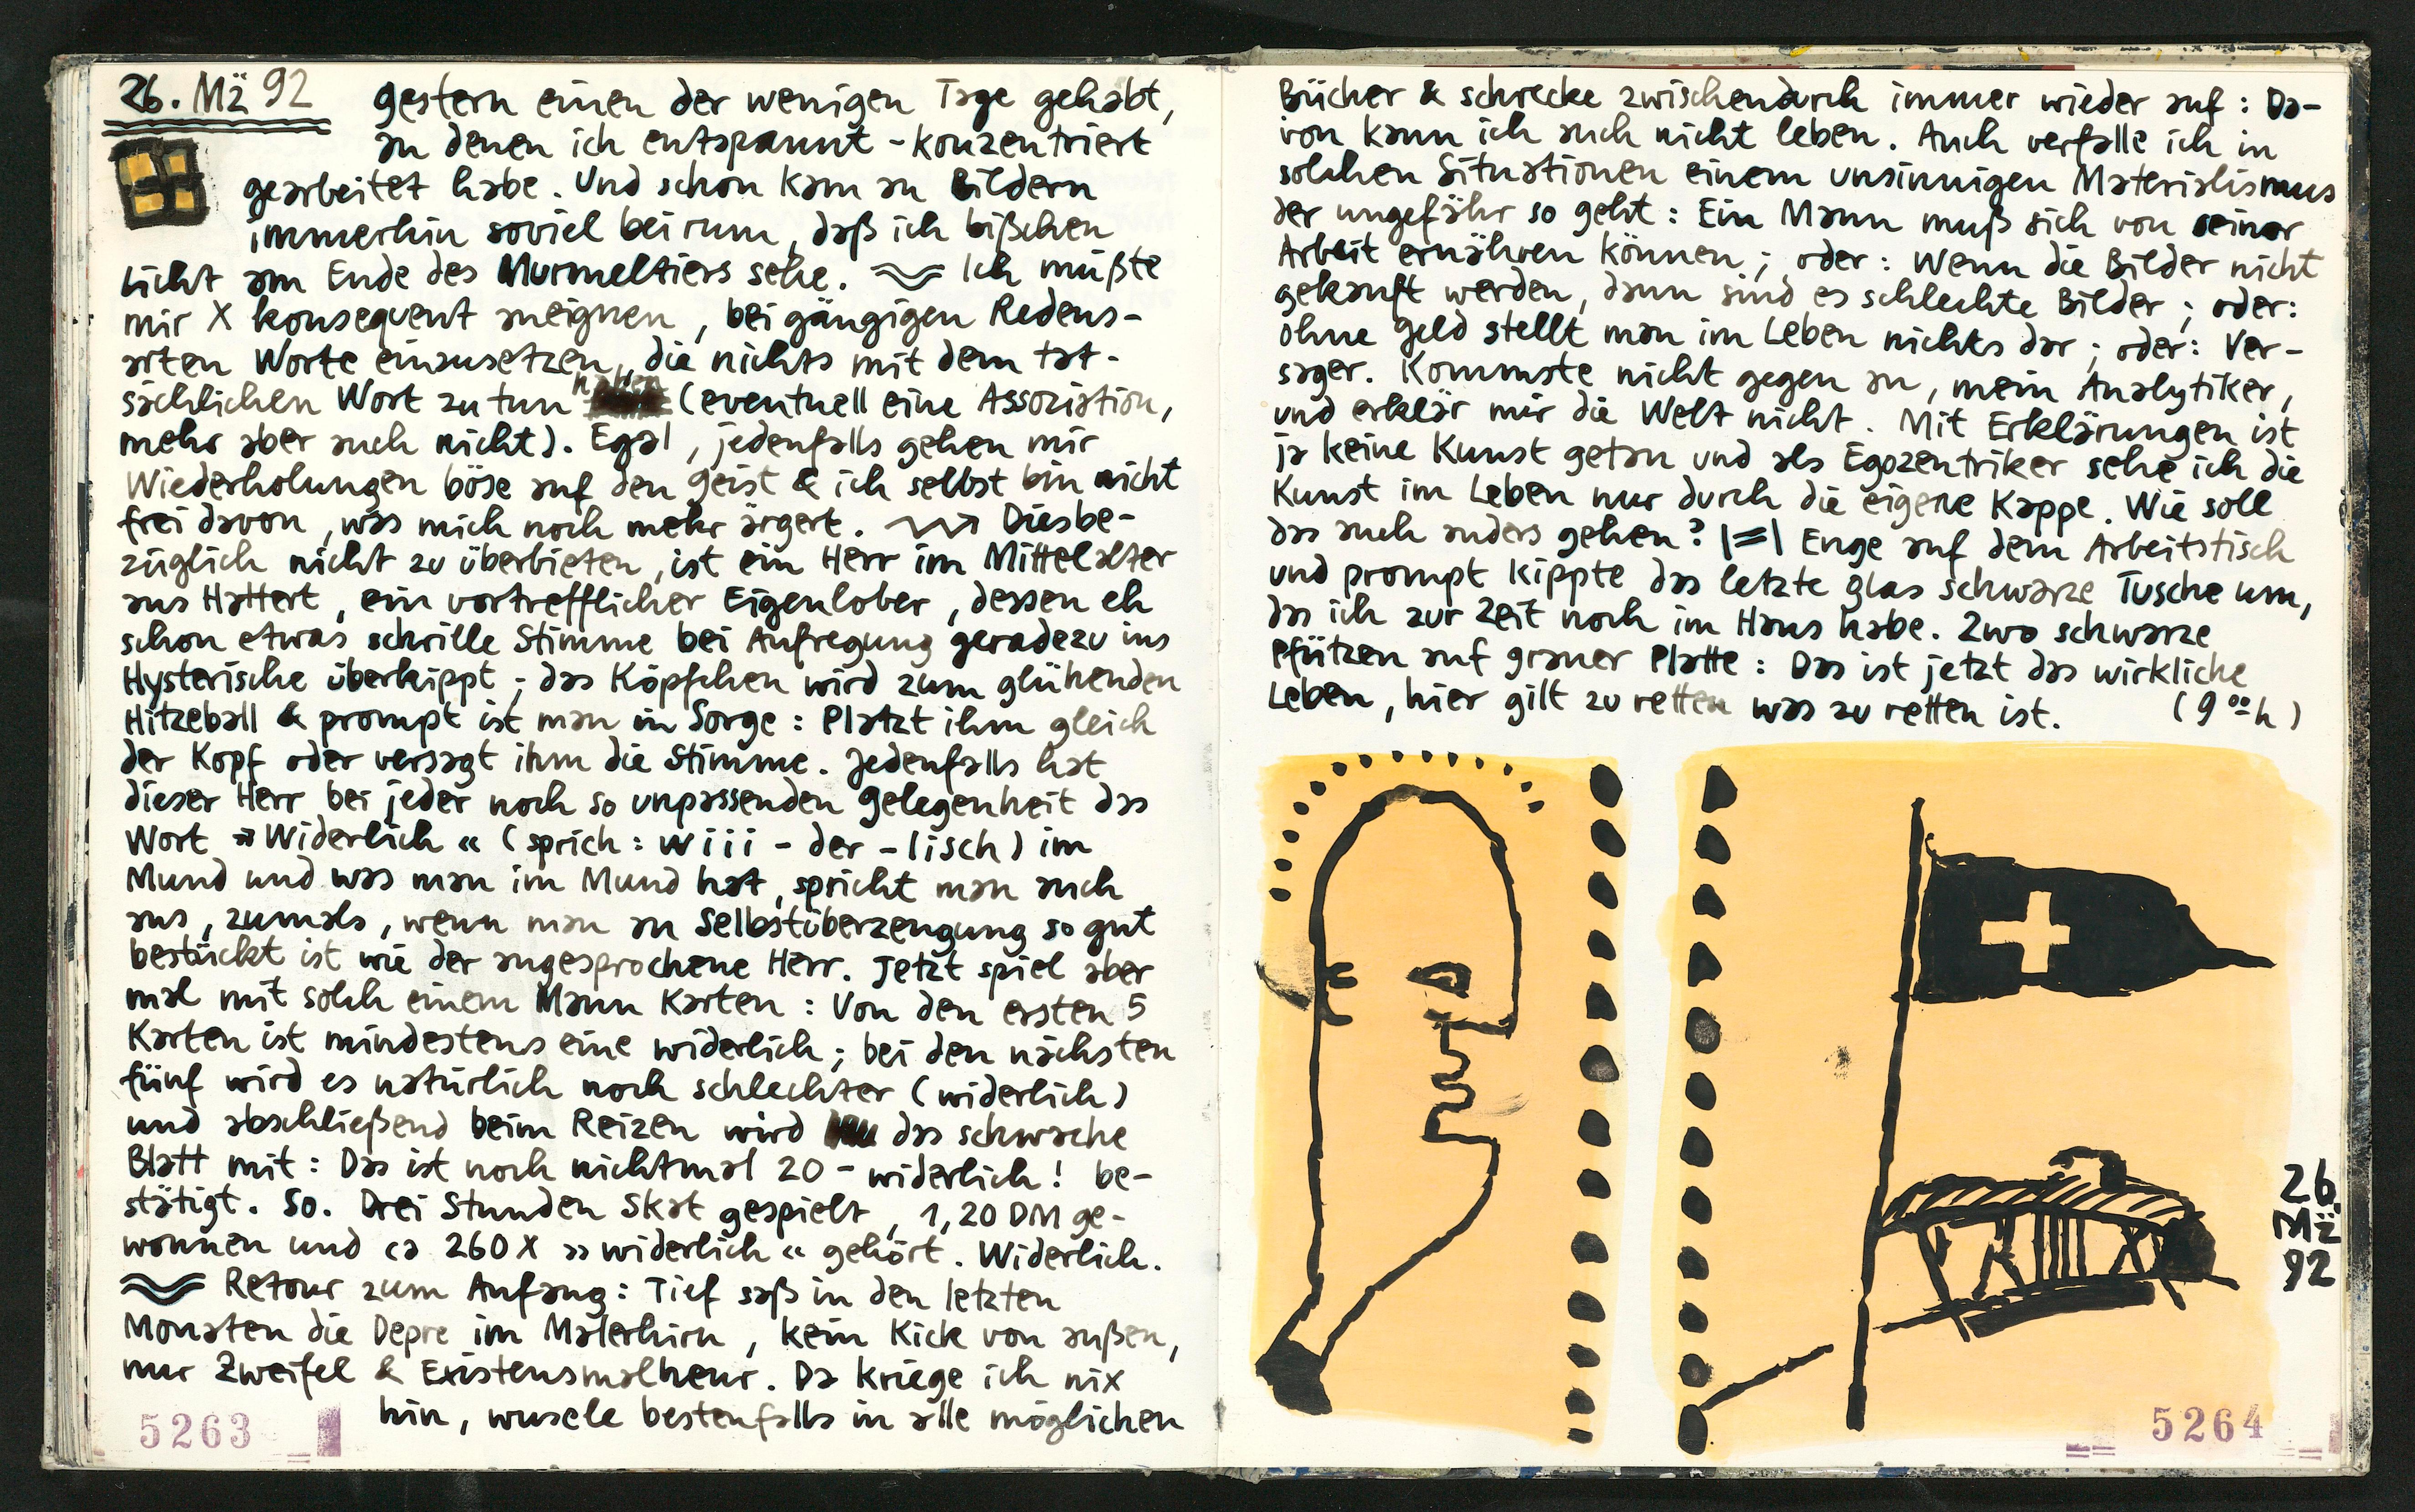 26. Mä 92
gestern einen der wenigen Tage gehabt,
an denen ich entspannt - konzentriert
gearbeitet habe. Und schon kam an Bildern
immerhin soviel bei rum, daß ich bißchen
Licht am Ende des Murmeltiers sehe. Ich müßte
mir X konsequent aneignen, bei gängigen Redens-
arten Worte einzusetzen, die nichts mit dem tat-
sächlichen Wort zu tun haben (eventuell eine Assoziation,
mehr aber auch nicht). Egal, jedenfalls gehen mir
Wiederholungen böse auf den Geist & ich selbst bin nicht
frei davon, was mich noch mehr ärgert. Diesbe-
züglich nicht zu überbieten, ist ein Herr im Mittelalter
aus Hattert, ein vortrefflicher Eigenlober, dessen eh
schon etwas schrille Stimme bei Aufregung geradezu ins
Hysterische überkippt; das Köpfchen wird zum glühenden
Hitzeball & prompt ist man in Sorge: Platzt ihm gleich
der Kopf oder versagt ihm die Stimme. Jedenfalls hat
dieser Herr bei jeder noch so unpassenden Gelegenheit das
Wort »Widerlich« (sprich: wiii - der - lisch) im
Mund und was man im Mund hat, spricht man auch
aus, zumals, wenn man an Selbstüberzeugung so gut
bestückt ist wie der angesprochene Herr. Jetzt spiel aber
mal mit solch einem Mann Karten: Von den ersten 5
Karten ist mindestens eine widerlich; bei den nächsten
fünf wird es natürlich noch schlechter (widerlich)
und abschließend beim Reizen wird das schwache
Blatt mit: Das ist noch nichtmal 20 - widerlich! be-
stätigt. So. Drei Stunden Skat gespielt, 1,20 DM ge-
wonnen und ca 260 X »widerlich« gehört. Widerlich.
Retour zum Anfang: Tief saß in den letzten
Monaten die Depre im Malerhirn, kein Kick von außen,
nur Zweifel & Existensmalheur. Da kriege ich nix
hin, wusele bestenfalls in alle möglichen
5263
Bücher & schrecke zwischendurch immer wieder auf: Da-
von kann ich auch nicht leben. Auch verfalle ich in
solchen Situationen einem unsinnigen Materialismus
der ungefähr so geht: Ein Mann muß sich von seiner
Arbeit ernähren können; oder: Wenn die Bilder nicht
gekauft werden, dann sind es schlechte Bilder; oder:
ohne Geld stellt man im Leben nichts dar; oder: Ver-
sager. Kommste nicht gegen an, mein Analytiker,
und erklär mir die Welt nicht. Mit Erklärungen ist
ja keine Kunst getan und als Egozentriker sehe ich die
Kunst im Leben nur durch die eigene Kappe. Wie soll
das auch anders gehen? |=| Enge auf dem Arbeitstisch
und prompt kippte das letzte Glas schwarze Tusche um,
das ich zur Zeit noch im Haus habe. Zwo schwarze
Pfützen auf grauer Platte: Das ist jetzt das wirkliche
Leben, hier gilt zu retten was zu retten ist. (9ºº h)
26.
Mä
92
5264